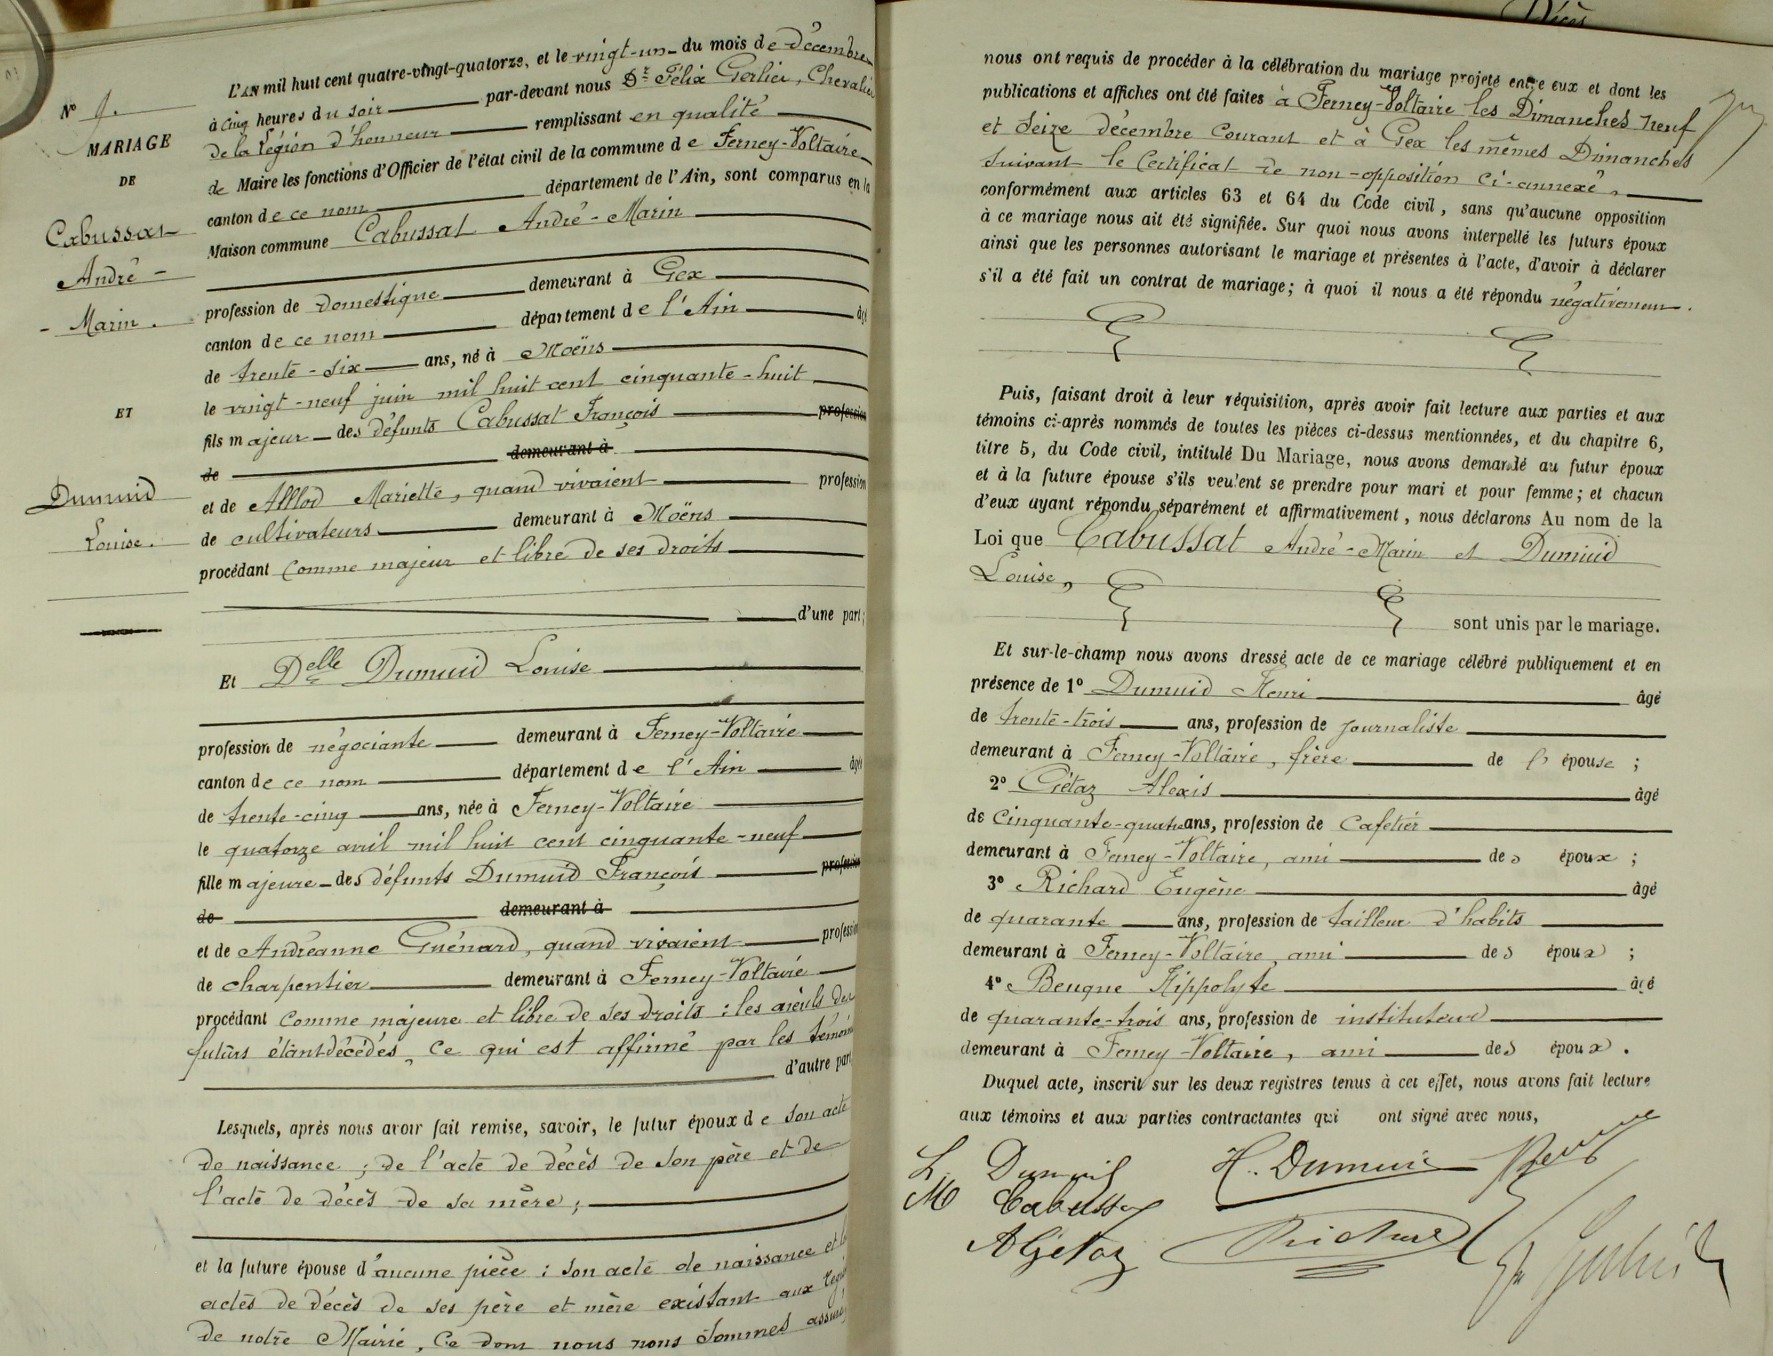 Décès
N° 9.
MARIAGE
DE
Cabussat
André -
- Marin .
ET
Dumuid
Louise.
L'AN mil huit cent quatre-vingt-quatorze, et le vingt-un du mois de Décembre
à cinq heures du soir par-devant nous Dr Félix Gerlier, Chevalier
de la Légion d'honneur remplissant en qualité
de Maire les fonctions d'Officier de l'état civil de la commune de Ferney-Voltaire
canton de ce nom département de l'Ain, sont comparus en la
Maison commune Cabussat André-Marin
profession de domestique demeurant à Gex
canton de ce nom département de l'Ain âgé
de trente-six ans, né à Moëns
le vingt-neuf juin mil huit cent cinquante-huit
fils majeur des défunts Cabussat François profession
de demeurant à
et de Alllod Mariette, quand vivaient profession
de cultivateurs demeurant à Moëns
procédant comme majeur et libre de ses droits
d'une part;
Et Delle Dumuid Louise
profession de négociante demeurant à Ferney-Voltaire
canton de ce nom département de l'Ain âgée
de trente-cinq ans, née à Ferney-Voltaire
le quatorze avril mil huit cent cinquante-neuf
fille majeure des défunts Dumuid François profession
de demeurant à
et de Andréanne Guénard, quand vivaient profession
de charpentier demeurant à Ferney-Voltaire
procédant comme majeure et libre de ses droits : les aïeuls des
futurs étant décédés, ce qui est affirmé par les témoins
d'autre part
Lesquels, après nous avoir fait remise, savoir, le futur époux de son acte
de naissance ; de l'acte de décès de son père et de
l'acte de décès de sa mère ;
et la future épouse d'aucune pièce : son acte de naissance et les
actes de décès de ses père et mère existant aux regis
de notre Mairie, ce dont nous nous sommes assuré
nous ont requis de procéder à la célébration du mariage projeté entre eux et dont les
publications et affiches ont été faites à Ferney-Voltaire les Dimanches neuf
et seize décembre courant et à Gex les mêmes Dimanches
suivant le certificat de non-opposition ci-annexé,
conformément aux articles 63 et 64 du Code civil, sans qu'aucune opposition
à ce mariage nous ait été signifiée. Sur quoi nous avons interpellé les futurs époux
ainsi que les personnes autorisant le mariage et présentes à l'acte, d'avoir à déclarer
s'il a été fait un contrat de mariage; à quoi il nous a été répondu négativement.
Puis, faisant droit à leur réquisition, après avoir fait lecture aux parties et aux
témoins ci-après nommés de toutes les pièces ci-dessus mentionnées, et du chapitre 6,
titre 5, du Code civil, intitulé Du Mariage, nous avons demandé au futur époux
et à la future épouse s'ils veulent se prendre pour mari et pour femme; et chacun
d'eux ayant répondu séparément et affirmativement, nous déclarons Au nom de la
Loi que Cabussat André-Marin et Dumuid
Louise,
sont unis par le mariage.
Et sur-le-champ nous avons dressé acte de ce mariage célébré publiquement et en
présence de 1° Dumuid Henri âgé
de trente-trois ans, profession de journaliste
demeurant à Ferney-Voltaire, frère de l'épouse ;
2° Gétaz Alexis âgé
de cinquante-quatre ans, profession de cafetier
demeurant à Ferney-Voltaire, ami des époux ;
3° Richard Eugène âgé
de quarante ans, profession de tailleur d'habits
demeurant à Ferney-Voltaire, ami des époux ;
4° Beuque Hippolyte âgé
de quarante-trois ans, profession de instituteur
demeurant à Ferney-Voltaire, ami des époux.
Duquel acte, inscrit sur les deux registres tenus à cet effet, nous avons fait lecture
aux témoins et aux parties contractantes qui ont signé avec nous,
L. Dumuid H. Dumuid
M Cabussat
A Gétaz Richard